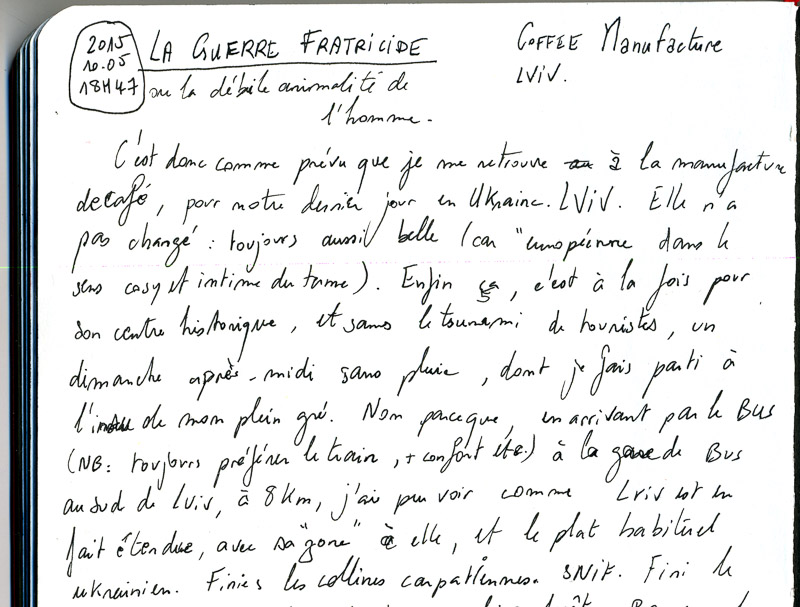 2015
10.05
18H47
LA GUERRE FRATRICIDE
COFFEE Manufacture
LViV.
ou la débile animalité de
l'homme.
C'est donc comme prévu que je me retrouve à la manufacture
de café, pour notre dernier jour en Ukraine. LViV. Elle n'a
pas changé : toujours aussi belle (car "européenne dans le
sens cosy et intime du terme). Enfin ça, c'est à la fois pour
son centre historique, et sans le tsunami de touristes, un
dimanche après-midi sans pluie, dont je fais parti à
l'insu de mon plein gré. Non parceque, en arrivant par le BUS
(NB: toujours préférer le train, + confort etc.) à la gare de BUS
au sud de Lviv, à 8km, j'ai pu voir comme Lviv est en
fait étendue, avec sa "zone" à elle, et le plat habituel
ukrainien. Finies les collines carpatiennes. SNif. Fini le